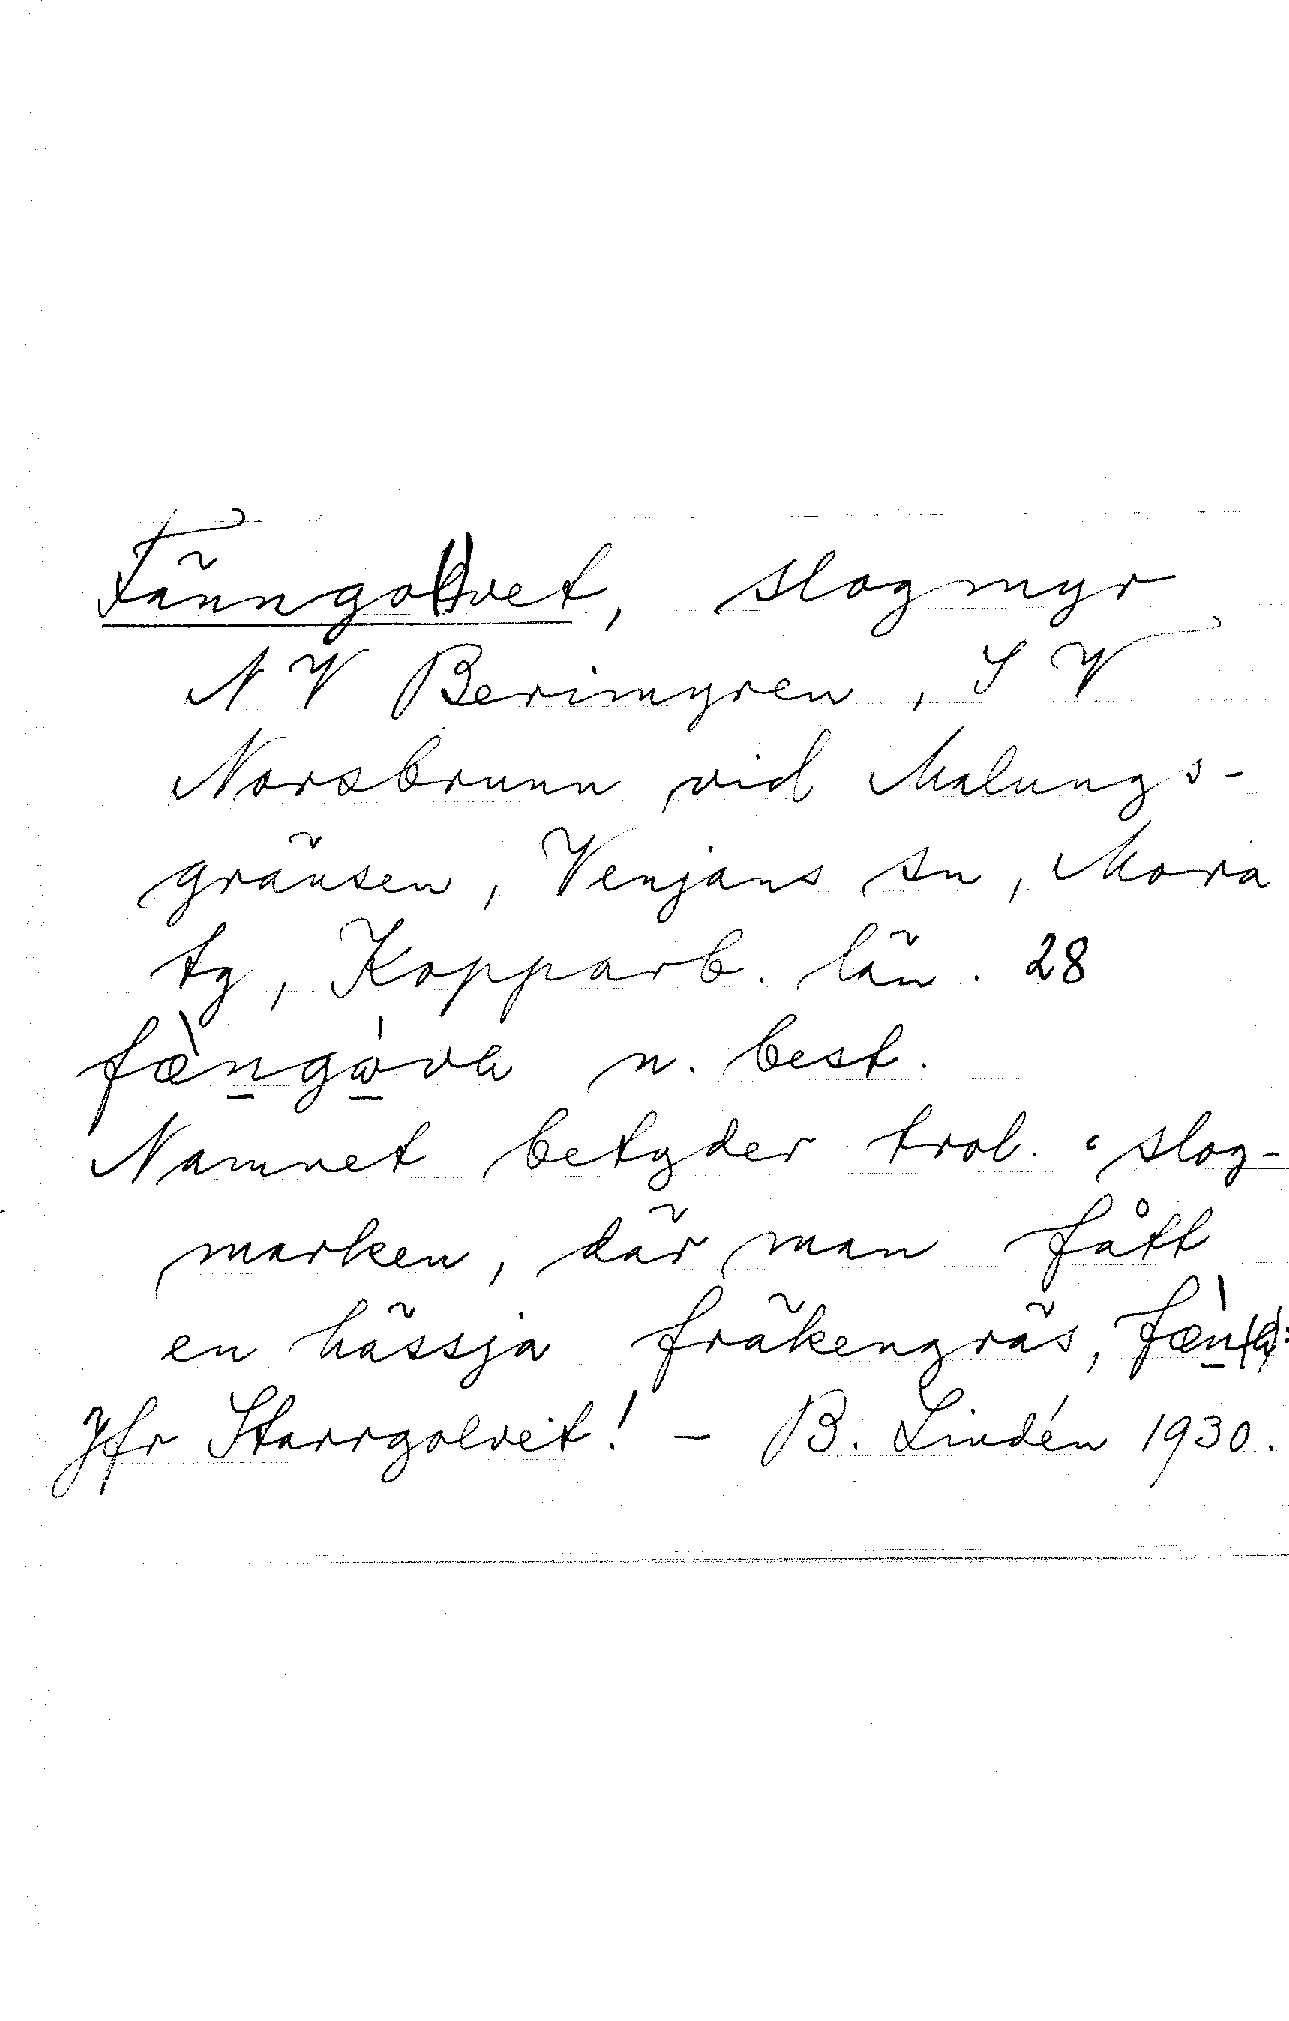 Fänngo(l)vet, slogmyr
NV Berimyren, SV
Norsbrunn vid Malungs-
gränsen, Venjans sn, Mora
tg, Kopparb. län. 28
fæ̀ngòva n. best.
Namnet betyder trol. "slog-
marken, där man fått
en hässja fräkengräs, fæ̀n(a):
Jfr Starrgolvet! - B. Lindén 1930.